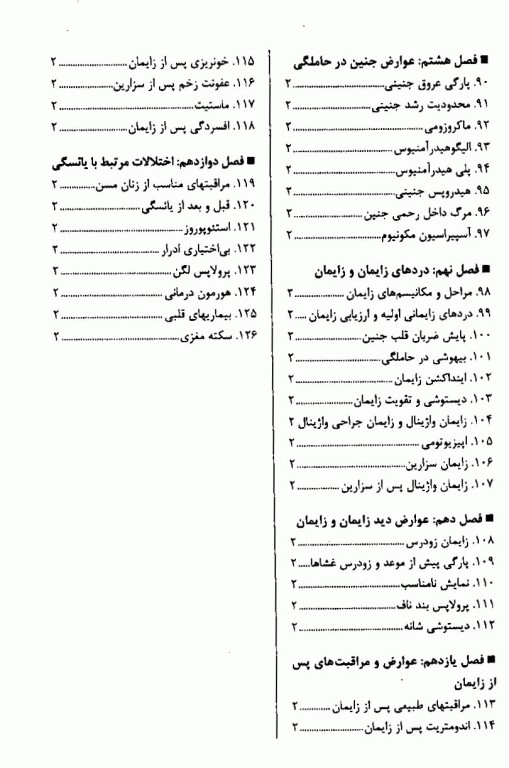 ■ فصل هشتم: عوارض جنین در حاملگی
۹۰. پارگی عروق جنینی ۲
۹۱. محدودیت رشد جنینی ۲
۹۲. ماکروزومی ۲
۹۳. الیگوهیدرآمنیوس ۲
۹۴. پلی هیدرآمنیوس ۲
۹۵. هیدروپس جنینی ۲
۹۶. مرگ داخل رحمی جنین ۲
۹۷. آسپیراسیون مکونیوم ۲
■ فصل نهم: دردهای زایمان و زایمان
۹۸. مراحل و مکانیسم‌های زایمان ۲
۹۹. دردهای زایمانی اولیه و ارزیابی زایمان ۲
۱۰۰. پایش ضربان قلب جنین ۲
۱۰۱. بیهوشی در حاملگی ۲
۱۰۲. اینداکشن زایمان ۲
۱۰۳. دیستوشی و تقویت زایمان ۲
۱۰۴. زایمان واژینال و زایمان جراحی واژینال ۲
۱۰۵. اپیزیوتومی ۲
۱۰۶. زایمان سزارین ۲
۱۰۷. زایمان واژینال پس از سزارین ۲
■ فصل دهم: عوارض دید زایمان و زایمان
۱۰۸. زایمان زودرس ۲
۱۰۹. پارگی پیش از موعد و زودرس غشاها ۲
۱۱۰. نمایش نامناسب ۲
۱۱۱. پرولاپس بند ناف ۲
۱۱۲. دیستوشی شانه ۲
■ فصل یازدهم: عوارض و مراقبت‌های پس
از زایمان
۱۱۳. مراقبتهای طبیعی پس از زایمان ۲
۱۱۴. اندومتریت پس از زایمان ۲
۱۱۵. خونریزی پس از زایمان ۲
۱۱۶. عفونت زخم پس از سزارین ۲
۱۱۷. ماستیت ۲
۱۱۸. افسردگی پس از زایمان ۲
■ فصل دوازدهم: اختلالات مرتبط با یائسگی
۱۱۹. مراقبتهای مناسب از زنان مسن ۲
۱۲۰. قبل و بعد از یائسگی ۲
۱۲۱. استئوپوروز ۲
۱۲۲. بی‌اختیاری ادرار ۲
۱۲۳. پرولاپس لگن ۲
۱۲۴. هورمون درمانی ۲
۱۲۵. بیماریهای قلبی ۲
۱۲۶. سکته مغزی ۲